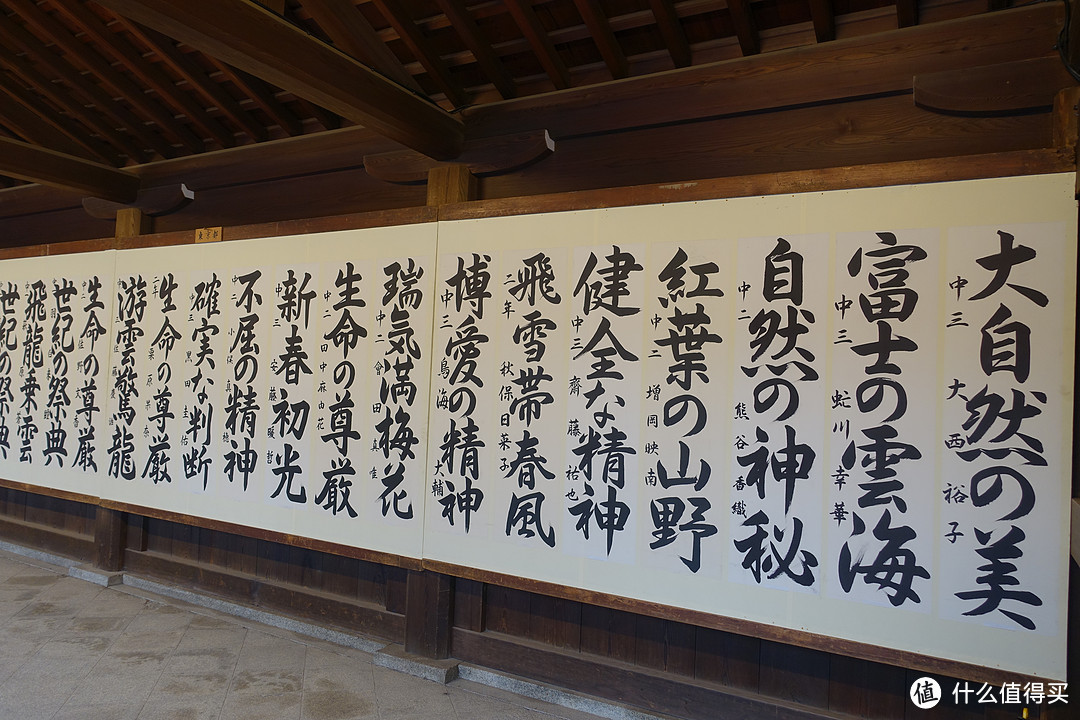 大自然の美
中三 大西裕子
富士の雲海
中三 虻川幸華
自然の神秘
中二 熊谷香織
紅葉の山野
中二 増岡映南
健全な精神
中三 齋藤祐也
飛雪帯春風
二年 秋保日菜子
博愛の精神
中三 鳥海大輔
瑞気満梅花
中二
生命の尊厳
中二 田中麻由花
新春初光
中三 安藤暖哲
不屈の精神
中二
確実な判断
中三 黒田圭佑
生命の尊厳
游雲驚龍
生命の尊厳
世紀の祭典
飛龍乗雲
世紀の祭典
值 什么值得买